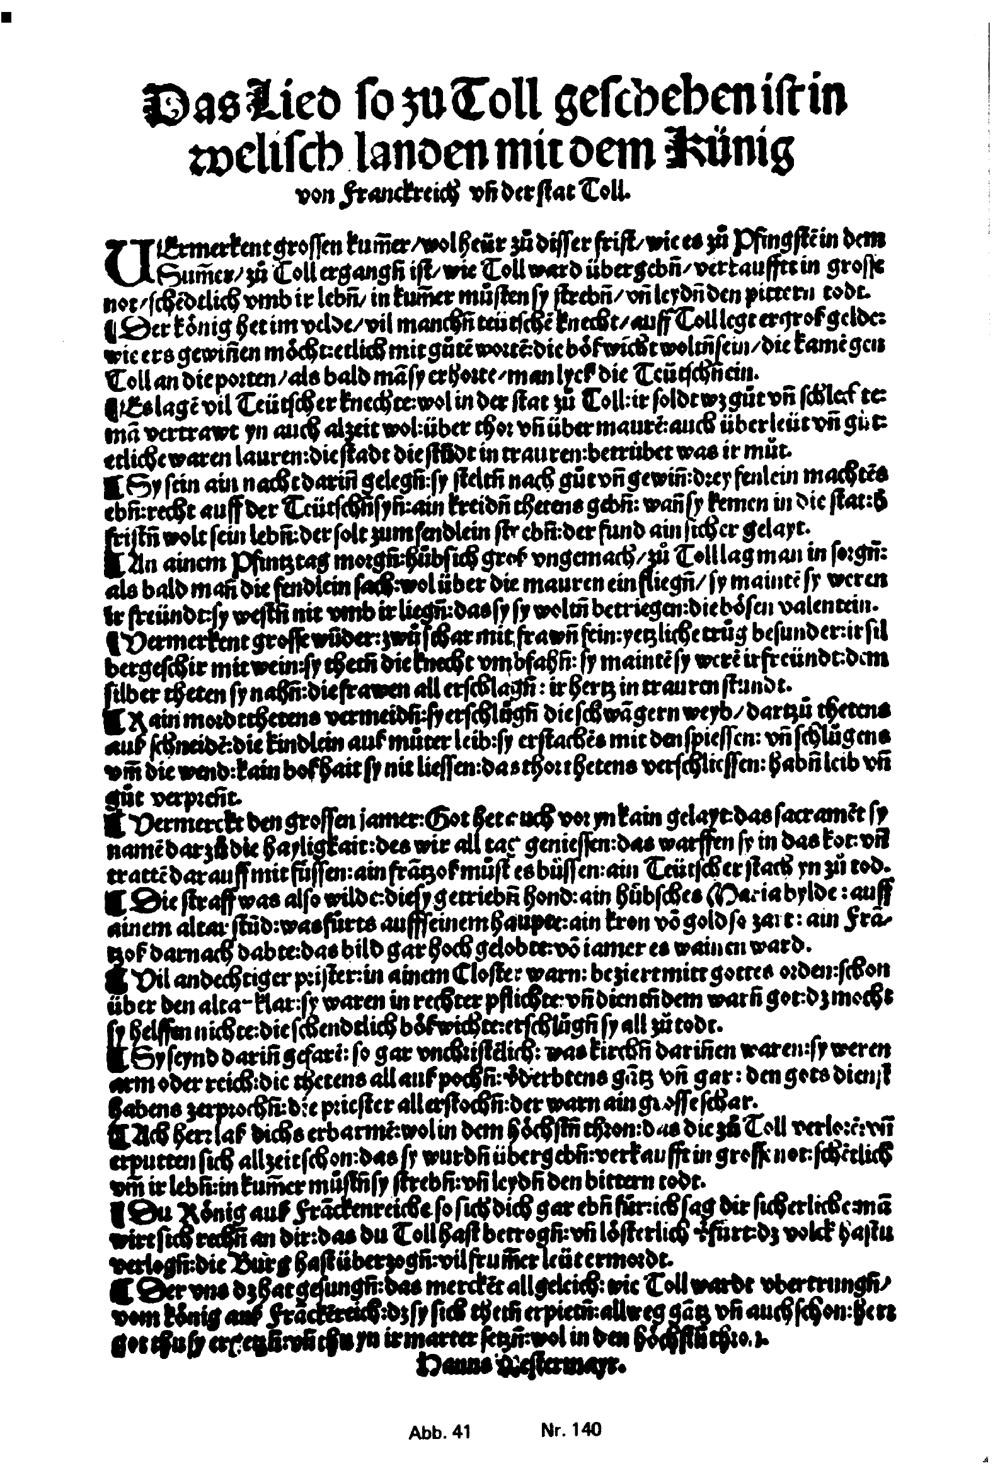 Das Lied so zu Toll gescheben ist in
welisch landen mit dem Künig
von Franckreich vñ der stat Toll.
VErmerkent grossen kum̄er/wol heür zů disser frist/wie es zů Pfingstē in dem
Sum̄er/zů Toll ergangñ ist/wie Toll ward übergebñ/verkaufft in grosse
not/schēdtlich vmb ir lebñ/in kum̄er můsten sy strebñ/vñ leydñ den pittern todt.
¶ Der kōnig het im velde/vil manchñ teütschē knecht/auff Toll legt er groß gelde:
wie ers gewiñen mōcht:etlich mit gůtē wortē:die bōßwicht woltñ sein/die kamē gen
Toll an die porten/als bald mā sy erhorte/man lyeß die Teütschñ ein.
¶ Es lagē vil Teütscher knechte:wol in der stat zů Toll:ir soldt wz gůt vñ schlecfte:
mā vertrawt yn auch alzeit wol:über thor vñ über maurē:auch über leüt vñ gůt:
etliche waren lauren:die stadt die stůdt in trauren:betrübet was ir můt.
¶ Sy sein ain nacht dariñ gelegñ:sy steltñ nach gůt vñ gewiñ:drey fenlein machtēs
ebñ:recht auff der Teütschñ syñ:ain kreidñ thetens gebñ:wañ sy kemen in die stat:d̄
fristñ wolt sein lebñ:der solt zum fendlein strebñ:der fund ain sicher gelayt.
¶ An ainem Pfintztag morgñ:hübsich groß vngemach/zů Toll lag man in sorgñ:
als bald mañ die fendlein sach:wol über die mauren ein fliegñ/sy maintē sy weren
ir freündt:sy westñ nit vmb ir liegñ:das sy sy woltñ betriegen:die bōsen valentein.
¶ Vermerkent grosse wůder:zwů schar mit frawñ fein:yetzliche trůg besunder:ir sil
bergeschir mit wein:sy thetñ die knecht vmbfahñ:sy maintē sy werē ir freündt:dem
silber theten sy nahñ:die frawen all erschlagñ:ir hertz in trauren stundt.
¶ Kain mordt thetens vermeidñ:sy erschlůgñ die schwāgern weyb/dartzů thetens
auß schneidē:die kindlein auß můter leib:sy erstachēs mit den spiessen:vñ schlůgens
vm̄ die wend:kain boßhait sy nit liessen:das thor thetens verschliessen:habñ leib vñ
gůt verprent.
¶ Vermerckt den grossen jamer:Got het auch vor yn kain gelayt:das sacramēt sy
namē darzů die hayligkait:des wir all tag geniessen:das warffen sy in das kot:vñ
trattē darauff mit füssen:ain frātzoß můst es büssen:ain Teütscher stach yn zů tod.
¶ Die straff was also wilde:die sy getriebñ hond:ain hübsches Mariabylde:auff
ainem altar stůd:was fürts auff seinem haupte:ain kron vō gold so zart:ain Frā-
tzoß darnach dabte:das bild gar hoch gelobte:vō iamer es wainen ward.
¶ Vil andechtiger prister:in ainem Closter warn:beziert mitt gottes orden:schon
über den alta-klar:sy waren in rechter pflichte:vñ dientñ dem warñ got:dz mocht
sy helffen nichte:die schendtlich bōßwichte:erschlůgñ sy all zů todt.
¶ Sy seynd dariñ gefarē:so gar vnchristēlich:was kirchñ dariñen waren:sy weren
arm oder reich:die thetens all auß pochñ:vderbtens gātz vñ gar:den gots dienst
habens zerprochñ:die priester all erstochñ:der warn ain grosse schar.
¶ Ach herr laß dichs erbarmē:wol in dem hōchstñ thron:das die zů Toll verlorē:vñ
erputten sich allzeit schon:das sy wurdñ übergebñ:verkaufft in grosse not:schētlich
vm̄ ir lebñ:in kum̄er můstñ sy strebñ:vñ leydñ den bittern todt.
¶ Du Kōnig auß Frāckenreiche so sich dich gar ebñ für:ich sag dir sicherliche:mā
wirt sich rechñ an dir:das du Toll hast betrogñ:vñ lōsterlich vfürt:dz volck hastu
verlogñ:die Burg hast überzogñ:vil frum̄er leüt ermordt.
¶ Der vns dz hat gesungñ:das merckēt all geleich:wie Toll wardt vbertrungñ/
vom kōnig auß Frāckēreich:dz sy sich thetñ erpietñ:allweg gātz vñ auch schon:herr
got thu sy ergetzñ:vñ thu yn ir marter setzñ:wol in den hōchstñ thron.
Hanns Westermayr.
Abb. 41 Nr. 140